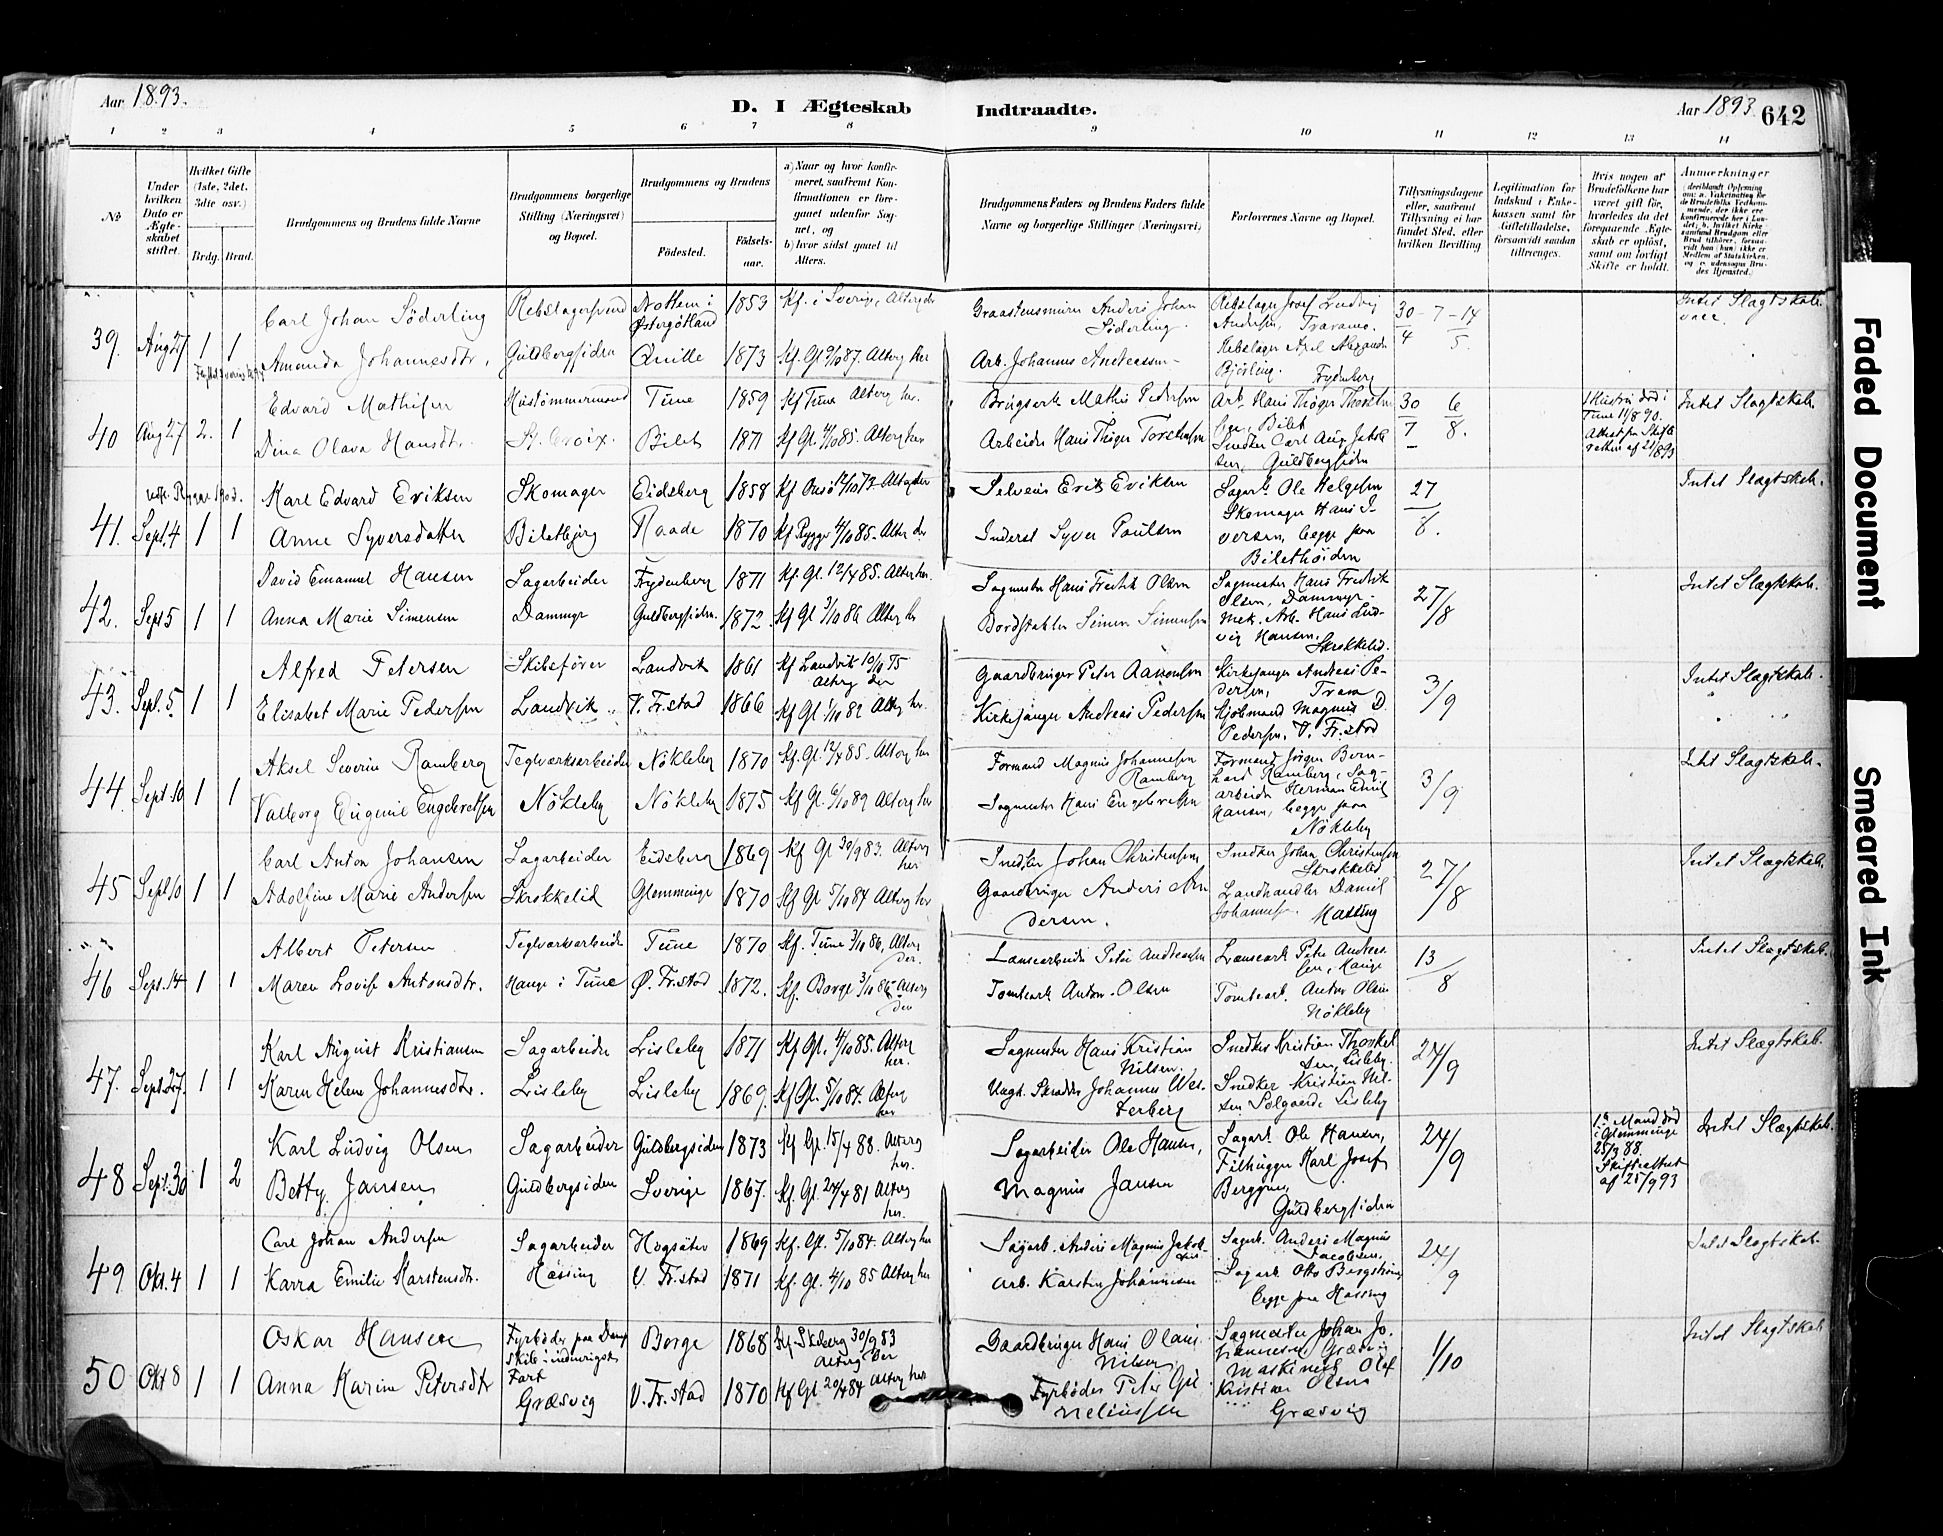 Aar 1893.
D. I Ægteskab Indtraadte.
Aar 1893 642
1 2 3 4 5 6 7 8 9 10 11 12 13 14
No
Under hvilken Dato er Ægteskabet stiftet.
Hvilket Gifte (1ste, 2det, 3dte osv.)
Brdg. Brud.
Brudgommens og Brudens fulde Navne
Brudgommens borgerlige Stilling (Næringsvei) og Bopæl.
Brudgommens og Brudens
Fødested. Fødselsaar.
a) Naar og hvor konfirmeret, saafremt Konfirmationen er foregaaet udenfor Sognet, og
b) hvor sidst gaaet til Alters.
Brudgommens Faders og Brudens Faders fulde Navne og borgerlige Stillinger (Næringsvei)
Forlovernes Navne og Bopæl.
Tillysningsdagene eller, saafremt Tillysning ei har fundet Sted, efter hvilken Bevilling
Legitimation for Indskud i Enkekassen samt for Giftetilladelse, forsaavidt saadan tiltrænges.
Hvis nogen af Brudefolkene har været gift før, hvorledes da det foregaaende Ægteskab er opløst, samt om lovligt Skifte er holdt.
Anmærkninger
39. Aug 27 1 1
Carl Johan Söderling Rebslagersvend Drothem i Østergötland 1853 Kf. i Sverige, Alterg der
Amanda Johannesdtr. Guldbergsiden Qville 1873 Kf. Gl 9/10 87. Alterg her
Graastensmurer Anders Johan Söderling.
Arb. Johannes Andreassen
Rebslager Josef Ludvig Andersen, Traramo.
Rebslager Axel Alexander Bjersling. Frydenberg
30/4 - 7 - 14/5
Intet Slagtskab
40 Aug 27 2. 1
Edvard Mathisen Hustømmermand Tune 1859 Kf Tune Alterg her.
Dina Olava Hansdtr. St. Croix. Bilet 1871 Kf Gl. 4/10 85. Alterg her
Brugserk Mathis Pedersen
Arbeider Hans Thøger Torstensen
Arb. Hans Thøger Thorstensen, Bilet
Snedker Carl Aug. Jakobsen, Guldbergsiden
30/7 - 6/8.
Hustru død i Tune 11/8 90.
Attest fra Skifteretten af 21/8 93
Intet Slagtskab.
41. Sept. 4 1 1
Karl Edvard Eriksen Skomager Eidsberg 1858 Kf Onsø 12/10 73 Alterg der
Anne Syversdatter Biletbjerg Raade 1870 Kf Rygge 4/10 85. Alter der
Selveier Erik Eriksen
Inderst Syver Paulsen
Sagarb. Ole Helgesen
Skomager Hans Iversen, begge paa Bilethöiden
27/8.
Intet Slagtskab.
42. Sept 5 1 1
David Emanuel Hansen Sagarbeider Frydenberg 1871 Kf. Gl. 12/4 85. Alterg her.
Anna Marie Simensen Dammyr Guldbergsiden. 1872. Kf Gl 3/10 86 Alterg her
Sagmester Hans Fredrik Olsen
Bordstabler Simen Simensen
Sagmester Hans Fredrik Olsen, Dammyr.
Mek. Arb. Hans Ludvig Hansen, Skrokkelid.
27/8
Intet Slægtskab.
43. Sept. 5 1 1
Alfred Petersen Skibsfører Landvik 1861 Kf Landvik 10/10 75 Alterg der
Elisabet Marie Pedersen Landvik V. Fr.stad 1866 Kf Gl 1/10 82 Alterg her.
Gaardbruger Peter Aanonsen
Kirkesanger Andreas Pedersen
Kirkesanger Andreas Pedersen, Trara
Kjøbmand Magnus D. Pedersen, V. Fr.stad
3/9
Intet Slagtskab.
44 Sept 10 1 1
Aksel Severin Ramberg Teglværksarbeider Nökleby 1870 Kf. Gl. 12/4 85. Alterg her
Valborg Eugenie Engebretsen Nökleby Nökleby 1875 Kf Gl. 6/10 89 Alterg her
Formand Magnus Johannesen Ramberg
Sagmester Hans Engebretsen
Formand Jörgen Bernhard Ramberg, Sagarbeider Herman Emil Hansen, begge paa Nökleby
3/9
Intet Slagtskab.
45 Sept 10 1 1
Carl Anton Johansen Sagarbeider Eidsberg 1869 Kf Gl 30/9 83. Alterg her
Adolfine Marie Andersen Skrokkelid Glemminge 1870 Kf Gl 5/10 84 Alterg her
Snedker Johan Christensen
Gaardbruger Anders Andersen.
Snedker Johan Christensen Skrokkelid
Landhandler Daniel Johannesen. Hassing
27/8
Intet Slagtskab.
46 Sept. 14 1 1
Albert Petersen Teglværksarbeider Tune 1870 Kf. Tune 3/10 86, Alterg der.
Maren Lovise Antonsdtr. Hauge i Tune Ø. Fr.stad 1872. Kf. Borge 3/10 86 Alterg der
Lænsearbeider Peter Andreassen
Tomtearb Anton Olsen
Lænsearb Peter Andreassen, Hauge
Tomtearb. Anton Olsen Nökleby
13/8
Intet Slagtskab.
47. Sept. 27. 1 1
Karl August Kristiansen Sagarbeider Lisleby 1871 Kf Gl. 4/10 85. Alterg her.
Karen Helene Johannesdtr. Lisleby Lisleby 1869. Kf Gl. 5/10 84. Alterg her
Sagmester Hans Kristian Nilsen.
Ungk. Skrædder Johannes Westerberg
Snedker Kristian Thorkelsen, Lisleby.
Snedker Kristian Nilsen Solgaard, Lisleby
24/9
Intet Slægtskab.
48 Sept. 30 1 2
Karl Ludvig Olsen Sagarbeider Guldbergsiden 1873 Kf Gl. 15/4 88. Alterg her.
Betty Jansen Guldbergsiden Sverige 1867. Kf. Gl. 24/4 81 Alterg her.
Sagarbeider Ole Hansen,
Magnus Jansen
Sagarb. Ole Hansen,
Filhugger Karl Josef Berggren, Guldbergsiden
24/9
1ste Mand død i Glemminge 25/3 88.
Skifteattest af 25/9 93
Intet Slægtskab.
49 Okt. 4 1 1
Carl Johan Andersen Sagarbeider Hogsäter 1869 Kf. Gl. 5/10 84. Alterg her
Karra Emilie Karstensdtr. Hassing V. Fr.stad 1871 Kf. Gl. 4/10 85 Alterg her
Sagarb. Anders Magnus Jakobsen
Arb. Karsten Johannesen
Sagarb. Anders Magnus Jacobsen,
Sagarb. Otto Bergström, begge paa Hassing
24/9
Intet Slagtskab.
50 Okt 8 1 1
Oskar Hansen Fyrbøder paa Dampskib i indenrigsk Fart Borge 1868 Kf. Skeberg 30/9 83 Alterg der
Anna Karine Petersdtr Græsvig V. Fr.stad 1870 Kf Gl. 20/4 84 Alterg her
Gaardbruger Hans Olaus Nilsen
Fyrbøder Peter Gulneliussen
Sagmester Johan Johannesen Græsvig
Maskinist Olaf Kristian Olsen Græsvig
1/10
Intet Slagtskab
Faded Document
Smeared Ink